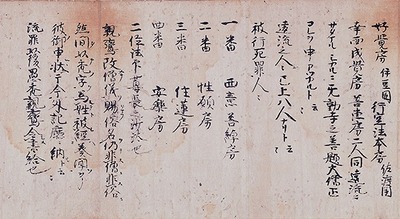 好覺房 伊豆國 行空法本房 佐渡國
幸西成覺房 善惠房二人同遠流ニ
サタマル シカルニ无動寺之善題大僧正
コレヲ申アツカルト云云
遠流之人々已上八人ナリト云云
被行死罪人々
一番 西意善綽房
二番 性願房
三番 住蓮房
四番 安樂房
二位法印尊長之沙汰也
親鸞改僧儀賜俗名仍非僧非俗
然間以禿字為姓被經奏聞了
彼御申狀于今外記廳ニ納ト云云
流罪以後愚禿親鸞令書給也